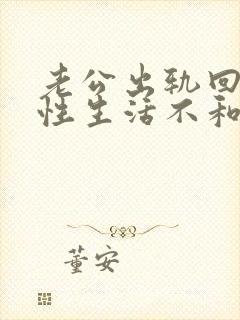 老公出轨回
性生活不和
董安